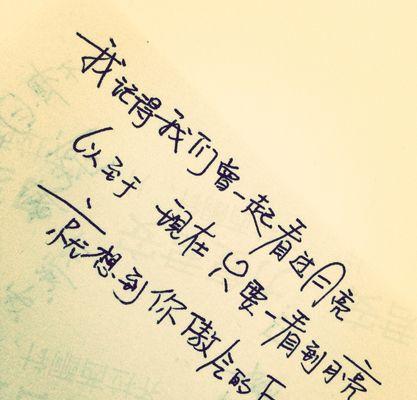 我记得我们曾一起看过月亮
以至于 现在只要一看到月亮
就想到你傲人的